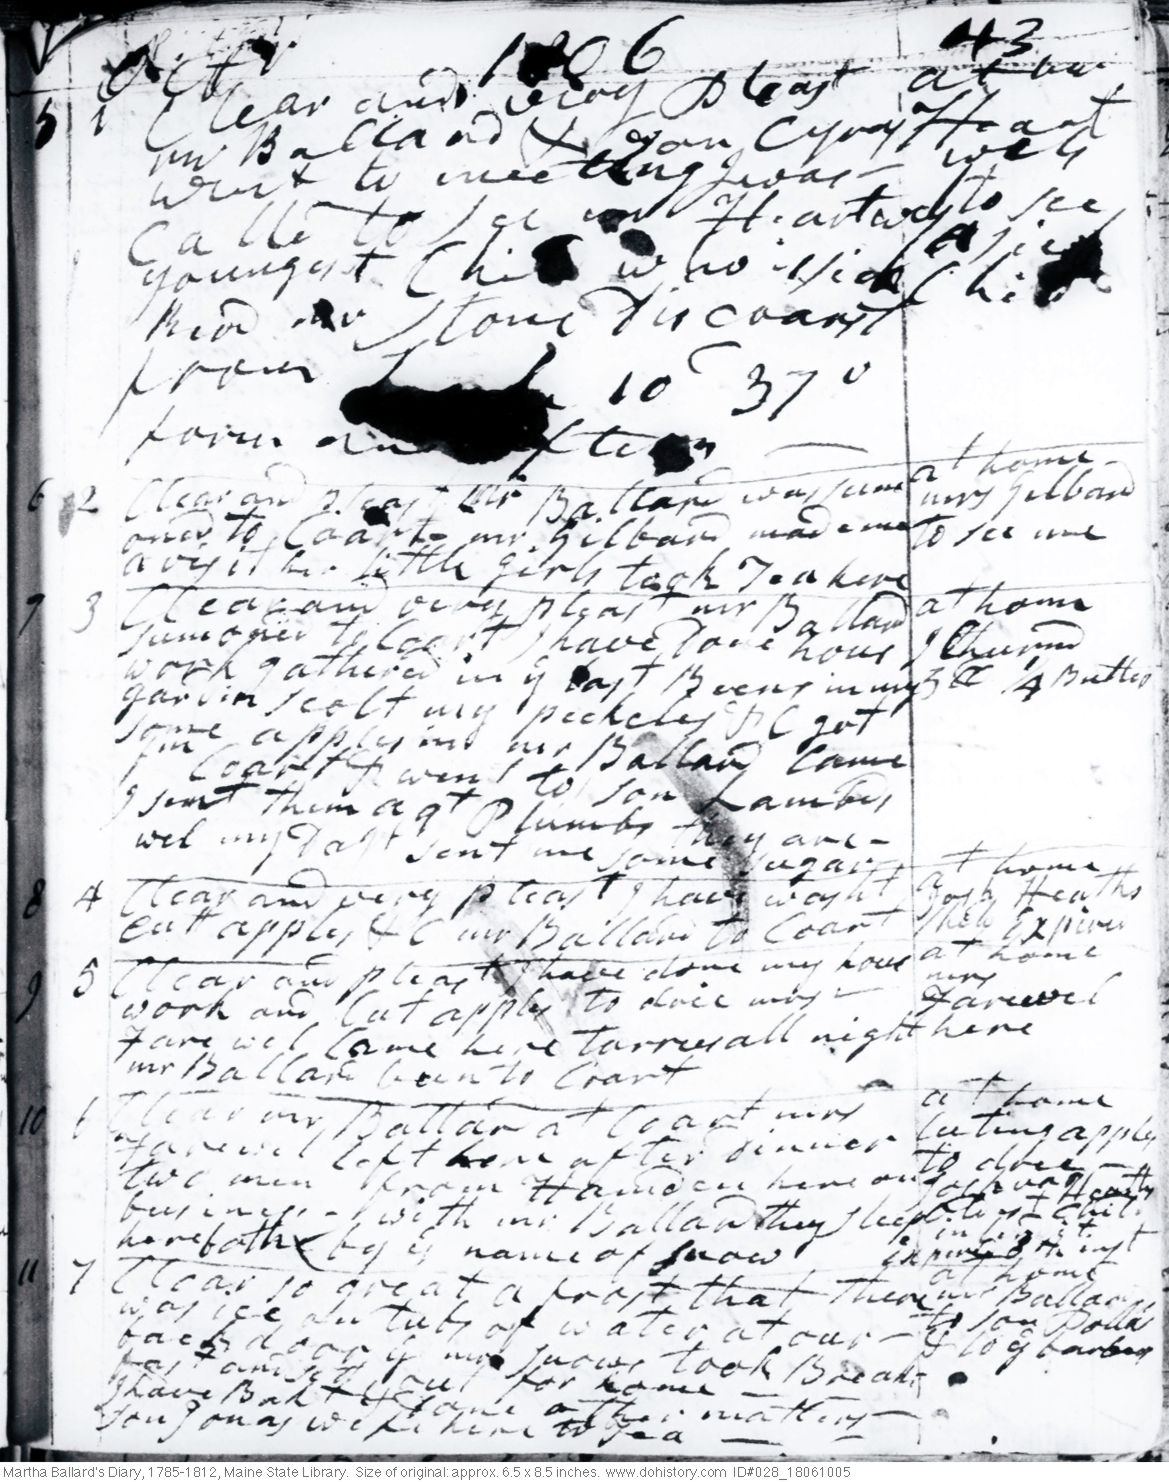 Oct 1806 43
5 1 Clear and very pleast at mr
mr Ballard & son Cyrus Heart
went to meeting I was wels
Calld to see mr Heartwels to see
youngest Chi who is sick a sick
Chi
Read mr Stone Discoarst
from 10 37 0
forn and aftern
6 2 Clear and pleast mr Ballard was sum at home
ond to Coart mrs Gilbard made me mrs Gilbard
a visit her little girls took Tea here to see me
7 3 Clear and very pleast mr Ballard at home
sumoned to Coart I have done hous I Churnd
work gathered in y last Beens in my 3 lb 1/4 Butter
gardin scolt my peckels &C got
some apples in mr Ballard Came
fm Coart & went to son Lambds
I sent them a qt Plumbs they are
wel my Dagt sent me some sugar
8 4 Clear and very pleast I have washt at home
Cutt apples &C mr Ballard to Coart Josh Heaths
Expird
9 5 Clear and pleast I have done my hous at home
work and Cut apples to drie mrs mrs
Farewel Came here tarries all night here Farewel
mr Ballard been to Coart
10 6 Clear mr Ballard at Coart mrs at home
Farewel left here after dinner Cuting apples
two men from Hamden here on to drie
business with mr Ballard they sleep
here both by y name of Snow
expired 3th inst
11 7 Clear so great a frost that there at home
was ice in tubs of water at our mr Ballard
back door y mr Snows took Break to son Polds
fast and sett out for home & to g barbers
I have Bakt & done other matters
son Jonas wife here to Tea
Martha Ballard's Diary, 1785-1812, Maine State Library. Size of original: approx. 6.5 x 8.5 inches. www.dohistory.com ID#028_18061005